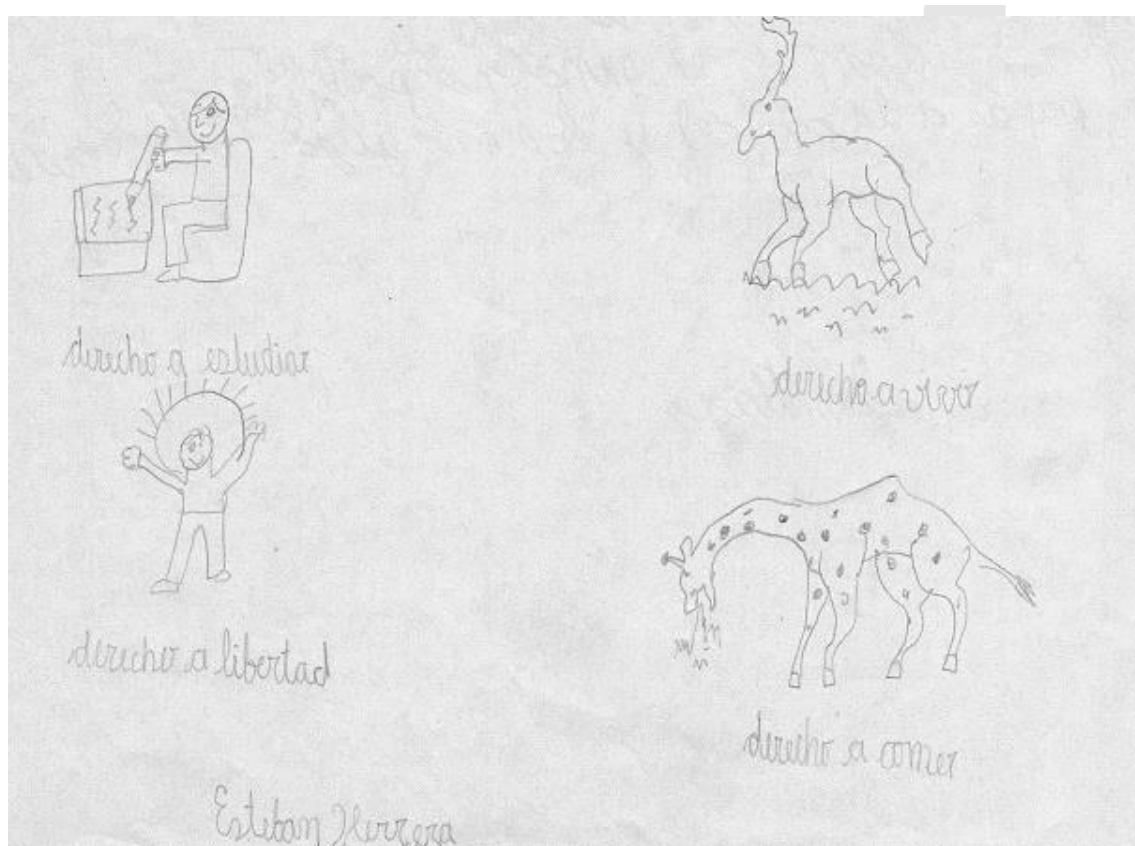 derecho a estudiar
derecho a vivir
derecho a libertad
derecho a comer
Esteban Herrera